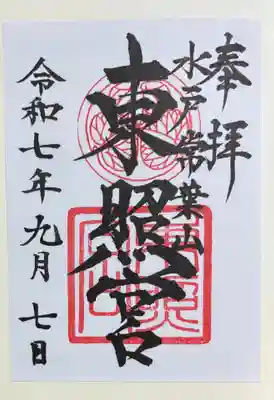 奉拝
水戸常葉山
東照宮
令和七年九月七日